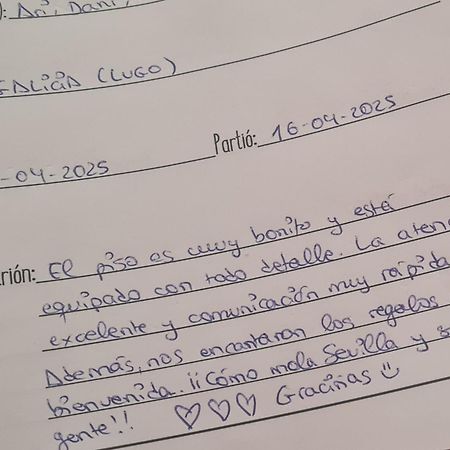 : Ari, Dani,
GALICIA (LUGO)
-04-2025 Partió: 16-04-2025
rión: El piso es muy bonito y está
equipado con todo detalle. La aten
excelente y comunicación muy rápida
Además, nos encantaron los regalos
bienvenida. ¡¡Cómo mola Sevilla y s
gente!! ♡♡♡ Graciñas ☺